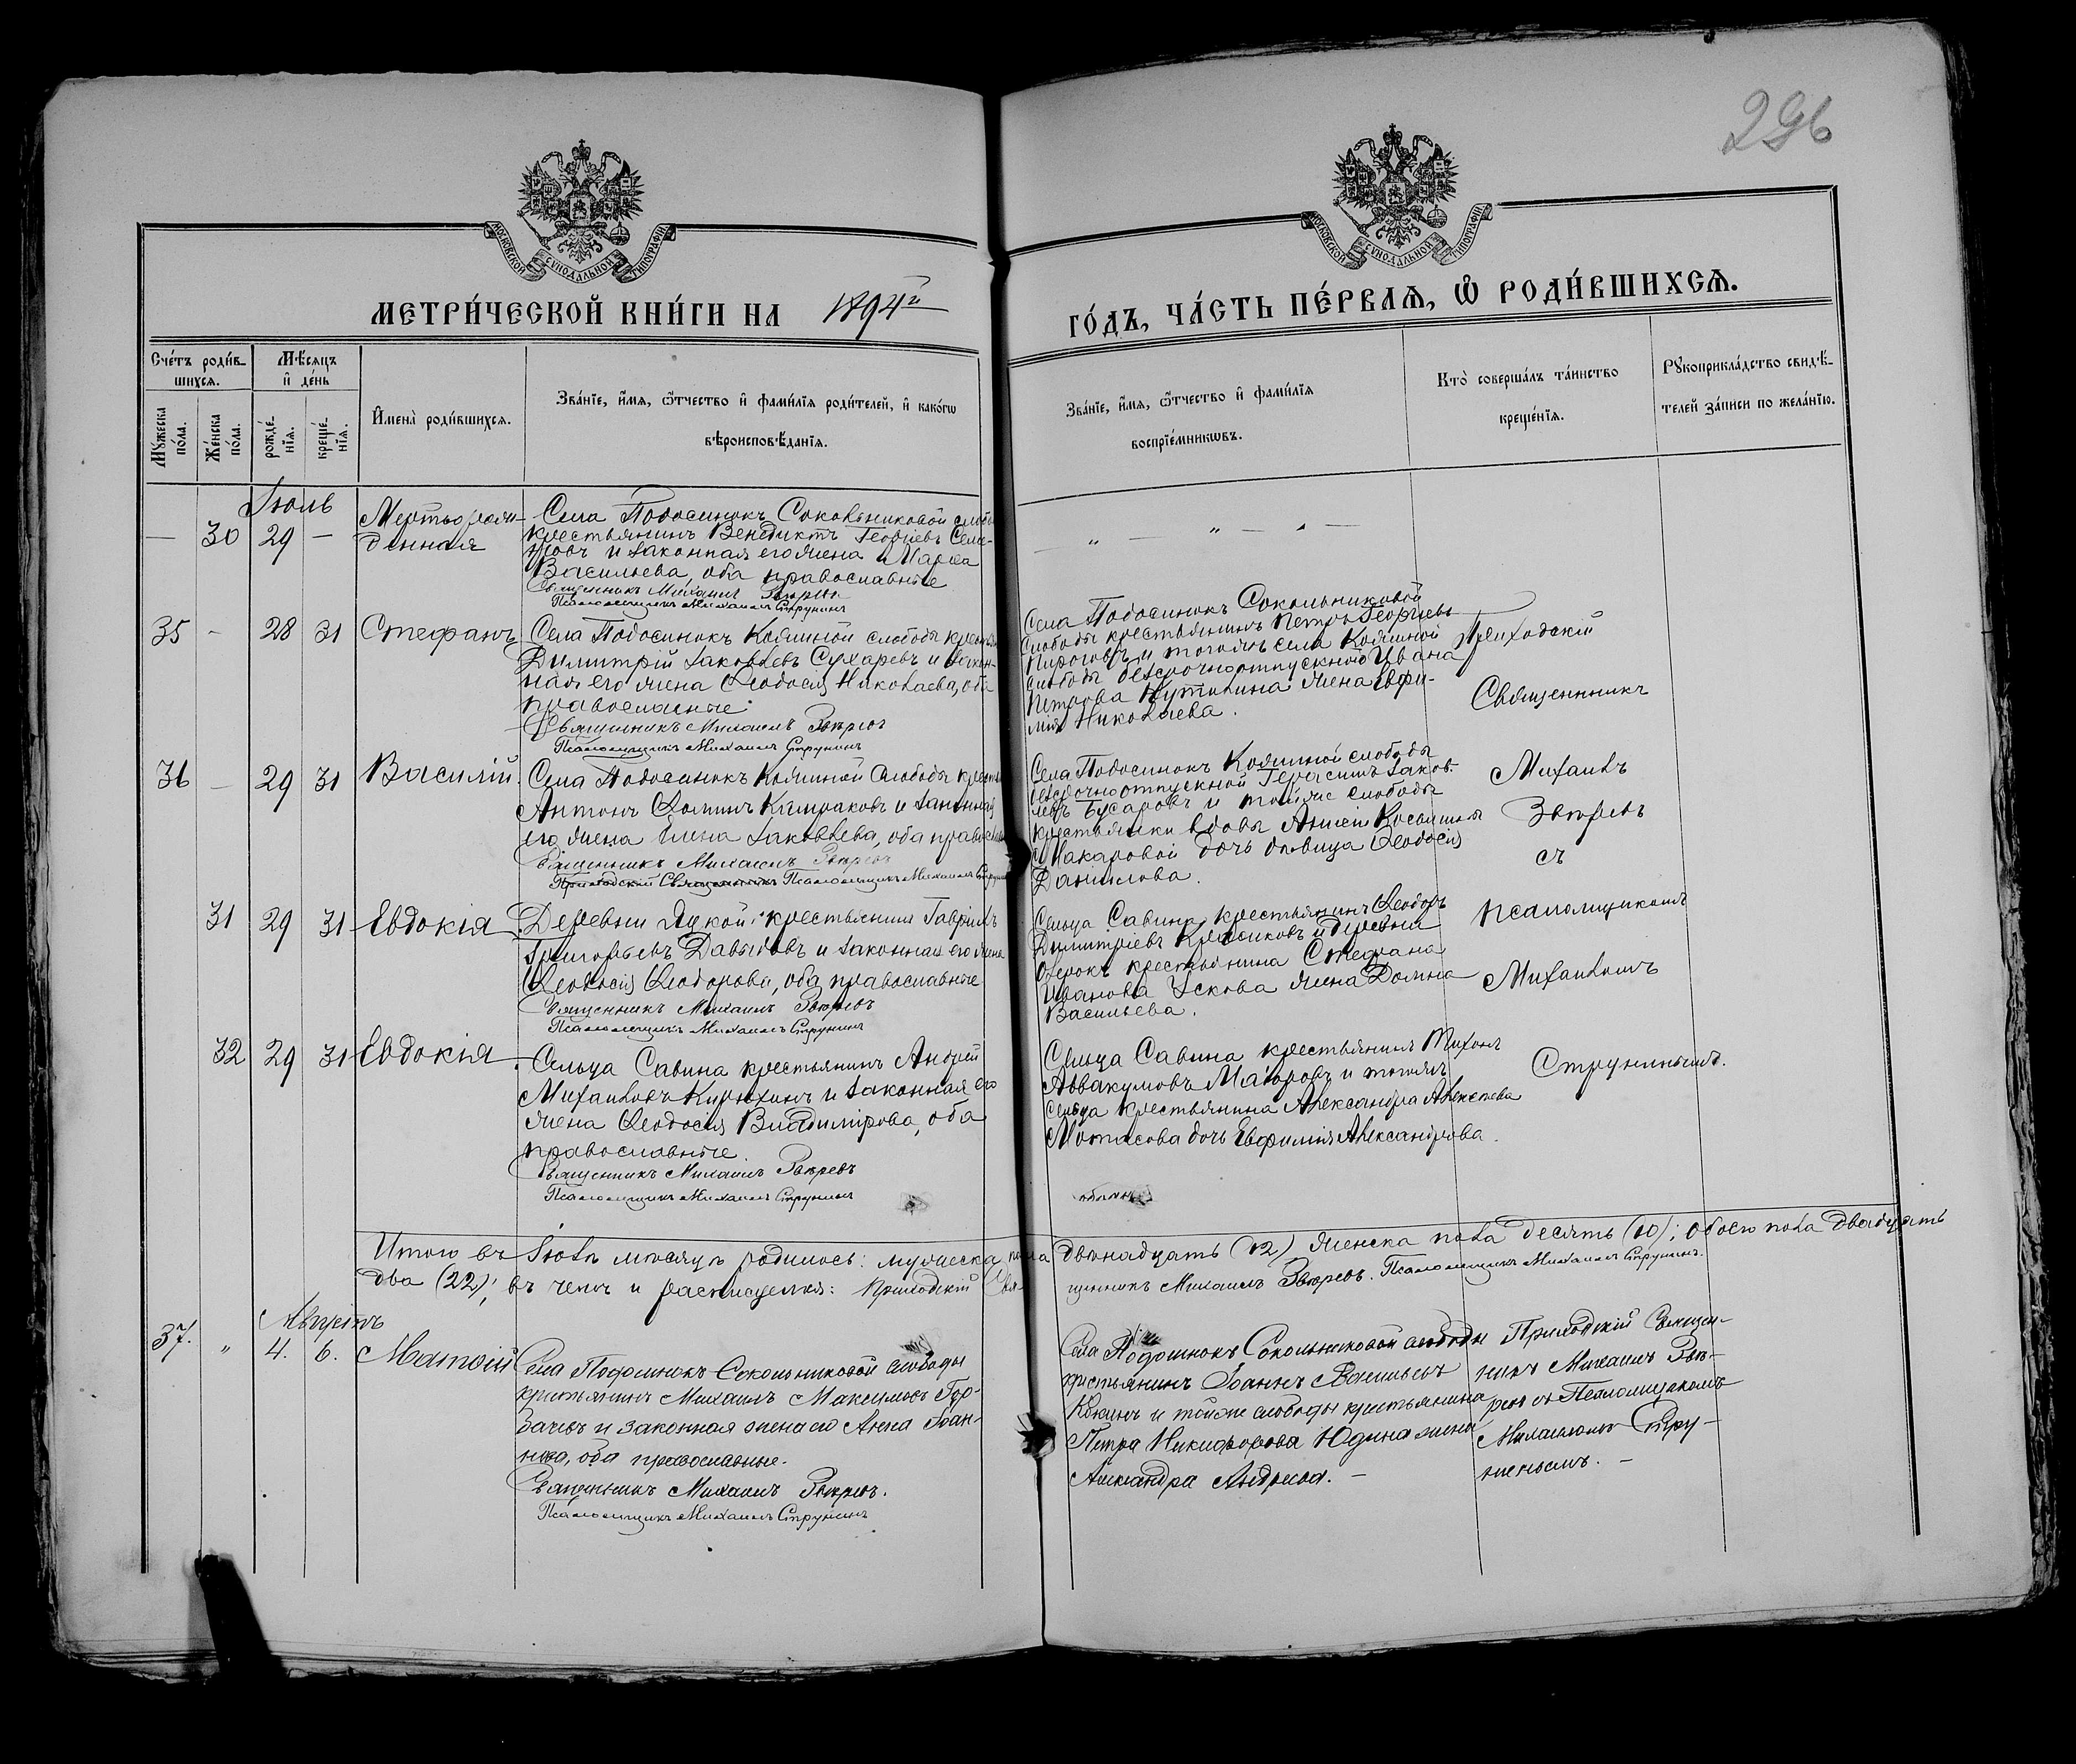 296
МОСКОВСКОЙ СѴНОДАЛЬНОЙ ТИПОГРАФІИ
МОСКОВСКОЙ СѴНОДАЛЬНОЙ ТИПОГРАФІИ
МЕТРИ́ЧЕСКОЙ КНИ́ГИ НА 1894й
ГО́ДЪ, ЧА́СТЬ ПЕ́РВАЯ, Ѡ РОДИ́ВШИХСЯ.
Сче́тъ роди́в-
шихся.
Мѣ́сяцъ
и де́нь
Мꙋ́жеска
по́ла.
Же́нска
по́ла.
рожде́-
нїя.
креще́-
нїя.
Имена̀ роди́вшихся.
Зва́нїе, и́мя, ѻ́тчество и фами́лїя роди́телей, и како́гѡ
вѣроисповѣ́данїя.
Зва́нїе, и́мя, ѻ́тчество и фами́лїя
воспрїе́мникѡвъ.
Кто̀ соверша́лъ та́инство
креще́нїя.
Рꙋкоприкла́дство свидѣ́-
телей за́писи по жела́нїю.
Іюль
— 30 29 —
Мертворож-
денная
Села Подосинокъ Сокольниковой слобо
крестьянинъ Венедиктъ Георгіевъ Семе-
новъ и законная его жена Марѳа
Васильева, оба православные
Священникъ Михаилъ Звѣревъ
Псаломщикъ Михаилъ Струнинъ
35 — 28 31 Стефанъ
Села Подосинокъ Кожиной слободы крестьян
Димитрій Іаковлевъ Сухаревъ и закон-
ная его жена Ѳеодосія Николаева, оба
православные.
Священникъ Михаилъ Звѣревъ
Псаломщикъ Михаилъ Струнинъ
Села Подосинокъ Сокольниковой
слободы крестьянинъ Петръ Георгіевъ
Пироговъ и тогожъ села Кожиной
слободы безсрочноотпускного Ивана
Петрова жена Евфи-
мія Николаева.
Приходскій
Священникъ
Михаилъ
Звѣревъ
съ
псаломщикомъ
Михаиломъ
Струнинымъ.
36 — 29 31 Василій.
Села Подосинокъ Кожиной слободы крестьян
Антонъ Ѳоминъ и законная
его жена Елена Іаковлева, оба православн
Священникъ Михаилъ Звѣревъ
Приходскій Священникъ Псаломщикъ Михаилъ Струнин
Села Подосинокъ Кожиной слободы
безсрочноотпускной Герасимъ Іаков-
левъ Бусаровъ и тойже слободы
крестьянки вдовы Анны Косьминой
Макаровой дочь дѣвица Ѳеодосія
Данилова.
31 29 31 Евдокія
Деревни Лукой крестьянинъ Гавріилъ
Григорьевъ Давыдовъ и законная его жена
Ѳеодосія Ѳеодорова, оба православные
Священникъ Михаилъ Звѣревъ
Псаломщикъ Михаилъ Струнинъ
Сельца Савина крестьянинъ Ѳеодоръ
Димитріевъ и деревни
Озерокъ крестьянина Стефана
Иванова Ускова жена Домна
Васильева.
32 29 31 Евдокія
Сельца Савина крестьянинъ Андрей
Михаиловъ Кирюхинъ и законная его
жена Ѳеодосія Владимірова, оба
православные.
Священникъ Михаилъ Звѣревъ
Псаломщикъ Михаилъ Струнинъ
Сельца Савина крестьянинъ Тихонъ
Аввакумовъ Маіоровъ и тогожъ
сельца крестьянина Александра Алексѣева
дочь Евфимія Александрова.
Итого въ Іюлѣ мѣсяцѣ родилось: мужеска пола двѣнадцать (12) женска пола десять (10); обоего пола двадцать
два (22); въ чемъ и расписуемся: Приходскій Свя- щенникъ Михаилъ Звѣревъ. Псаломщикъ Михаилъ Струнинъ.
Августъ
37. " 4. 6. Матѳій
Села Подосинокъ Сокольниковой слободы
крестьянинъ Михаилъ Максимовъ Гор-
бачевъ и законная жена его Анна Іоан-
нова, оба православные.
Священникъ Михаилъ Звѣревъ.
Псаломщикъ Михаилъ Струнинъ
Села Подосинокъ Сокольниковой слободы
крестьянинъ Іоаннъ Васильевъ
и тойже слободы крестьянина
Петра Никифорова Юдина жена
Александра Андреева. —
Приходскій Священ-
никъ Михаилъ Звѣ-
ревъ съ Псаломщикомъ
Михаиломъ Стру-
нинымъ. —